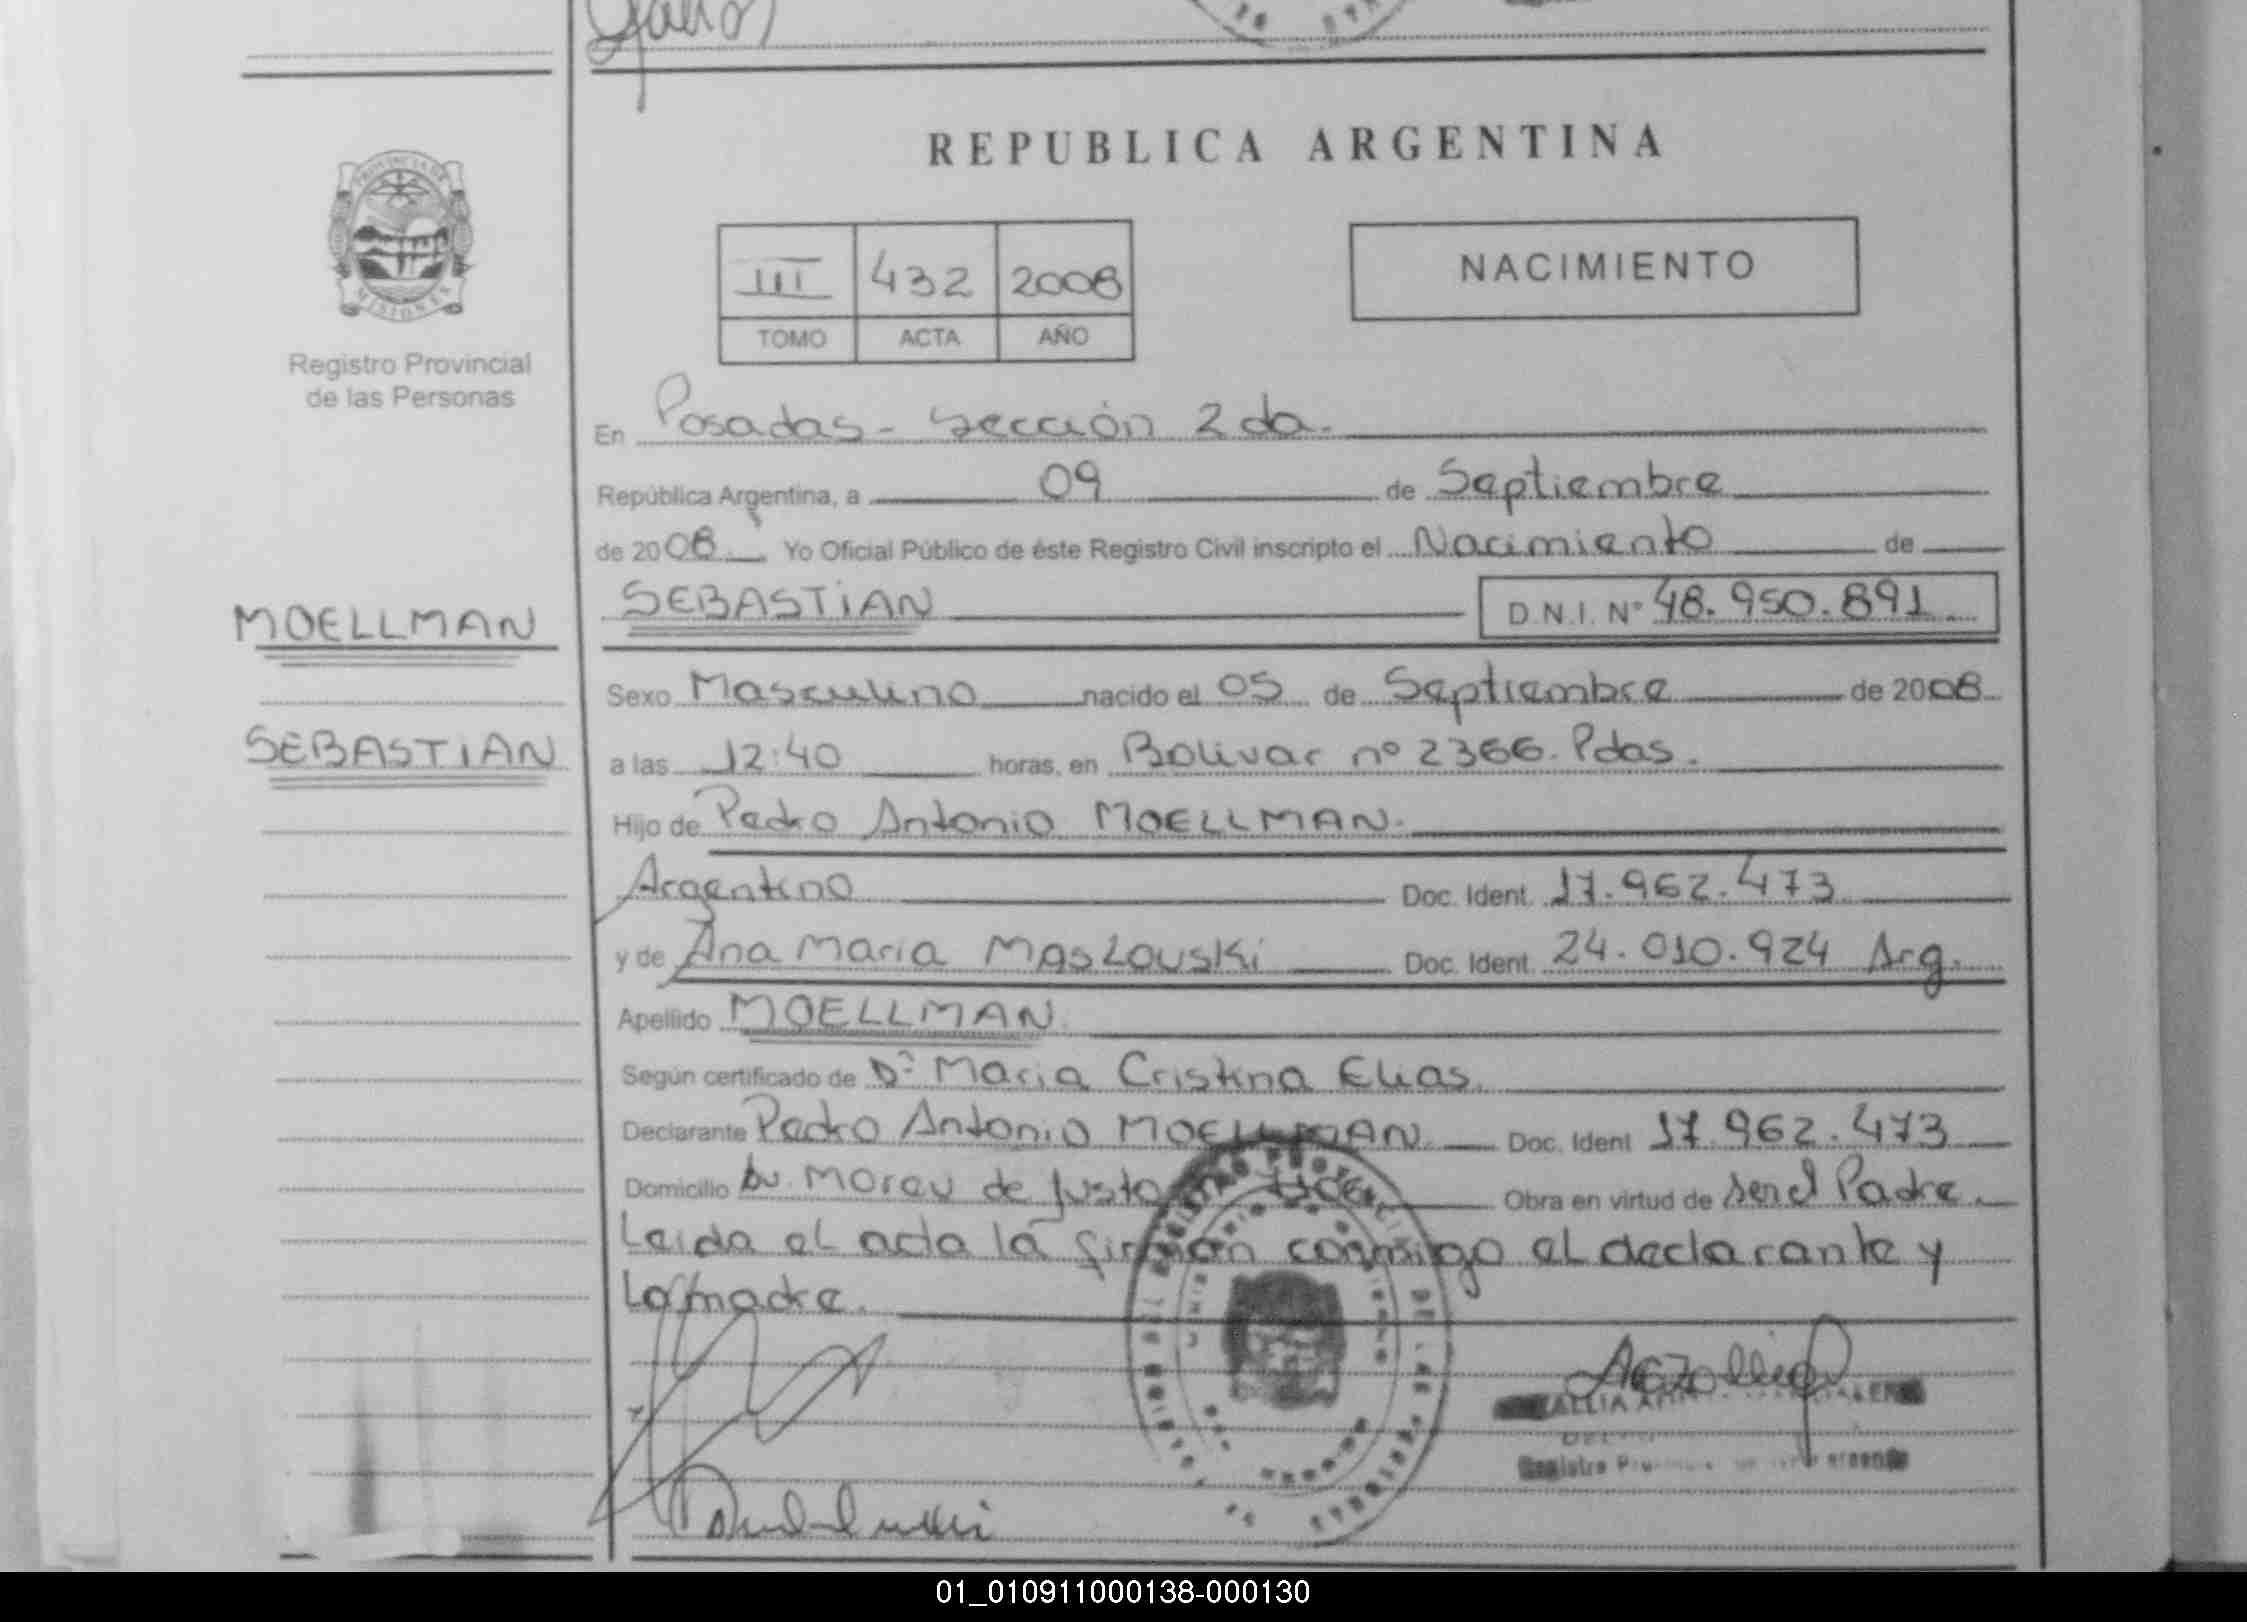 REPUBLICA ARGENTINA
PROVINCIA DE
MISIONES
Registro Provincial
de las Personas
III 432 2008
TOMO ACTA AÑO
NACIMIENTO
En Posadas - Sección 2da.
República Argentina, a 09 de Septiembre
de 2008. Yo Oficial Público de éste Registro Civil inscripto el Nacimiento de
SEBASTIAN D.N.I. Nº 48.950.891
MOELLMAN
SEBASTIAN
Sexo Masculino nacido el 05 de Septiembre de 2008
a las 12:40 horas, en Bolivar nº 2366. Pdas.
Hijo de Pedro Antonio MOELLMAN.
Argentino Doc. Ident. 17.962.473
y de Ana Maria MASLOUSKI Doc. Ident. 24.010.924 Arg.
Apellido MOELLMAN.
Según certificado de Dª Maria Cristina Elias.
Declarante Pedro Antonio MOELLMAN. Doc. Ident 17.962.473
Domicilio Av. Moreu de Justo Obra en virtud de ser el Padre.
Leida el acta la firman conmigo el declarante y
La madre.
01_010911000138-000130